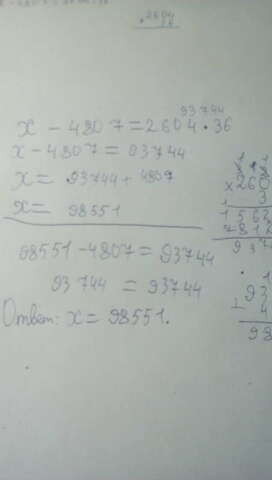 2604
93744
x - 4807 = 2604 · 36
x - 4807 = 93744
x = 93744 + 4807
x = 98551
98551 - 4807 = 93744
93744 = 93744
Ответ: x = 98551.
× 260
3
1562
+ 781
937
93
+ 4
98